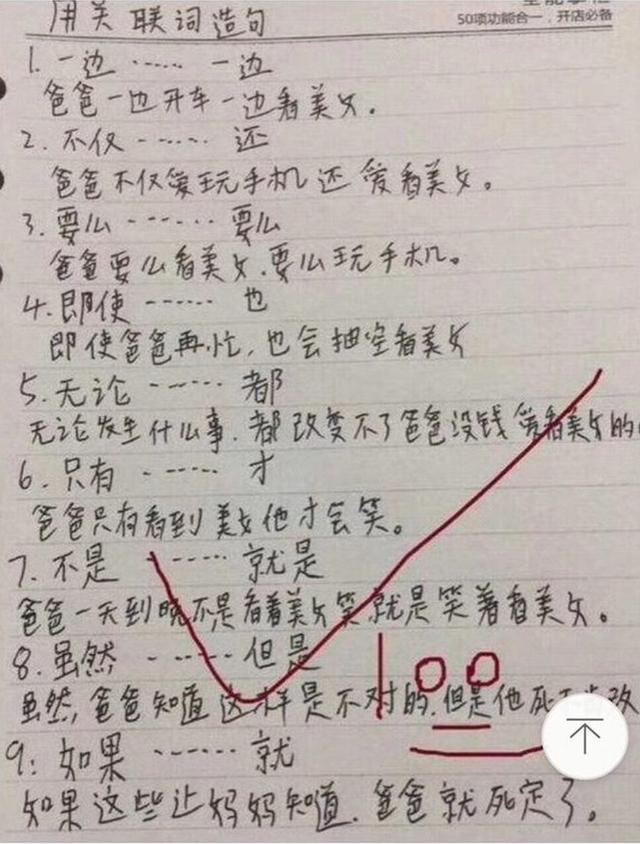 用关联词造句
50项功能合一，开店必备
1. 一边 …… 一边
爸爸一边开车一边看美女.
2. 不仅 …… 还
爸爸不仅爱玩手机还爱看美女。
3. 要么 …… 要么
爸爸要么看美女.要么玩手机。
4. 即使 …… 也
即使爸爸再忙,也会抽空看美女
5. 无论 …… 都
无论发生什么事.都改变不了爸爸没钱爱看美女的
6. 只有 …… 才
爸爸只有看到美女他才会笑。
7. 不是 …… 就是
爸爸一天到晚不是看着美女笑就是笑着看美女。
8. 虽然 …… 但是
100
虽然,爸爸知道这样是不对的.但是他死不肯改
9: 如果 …… 就
如果这些让妈妈知道.爸爸就死定了。